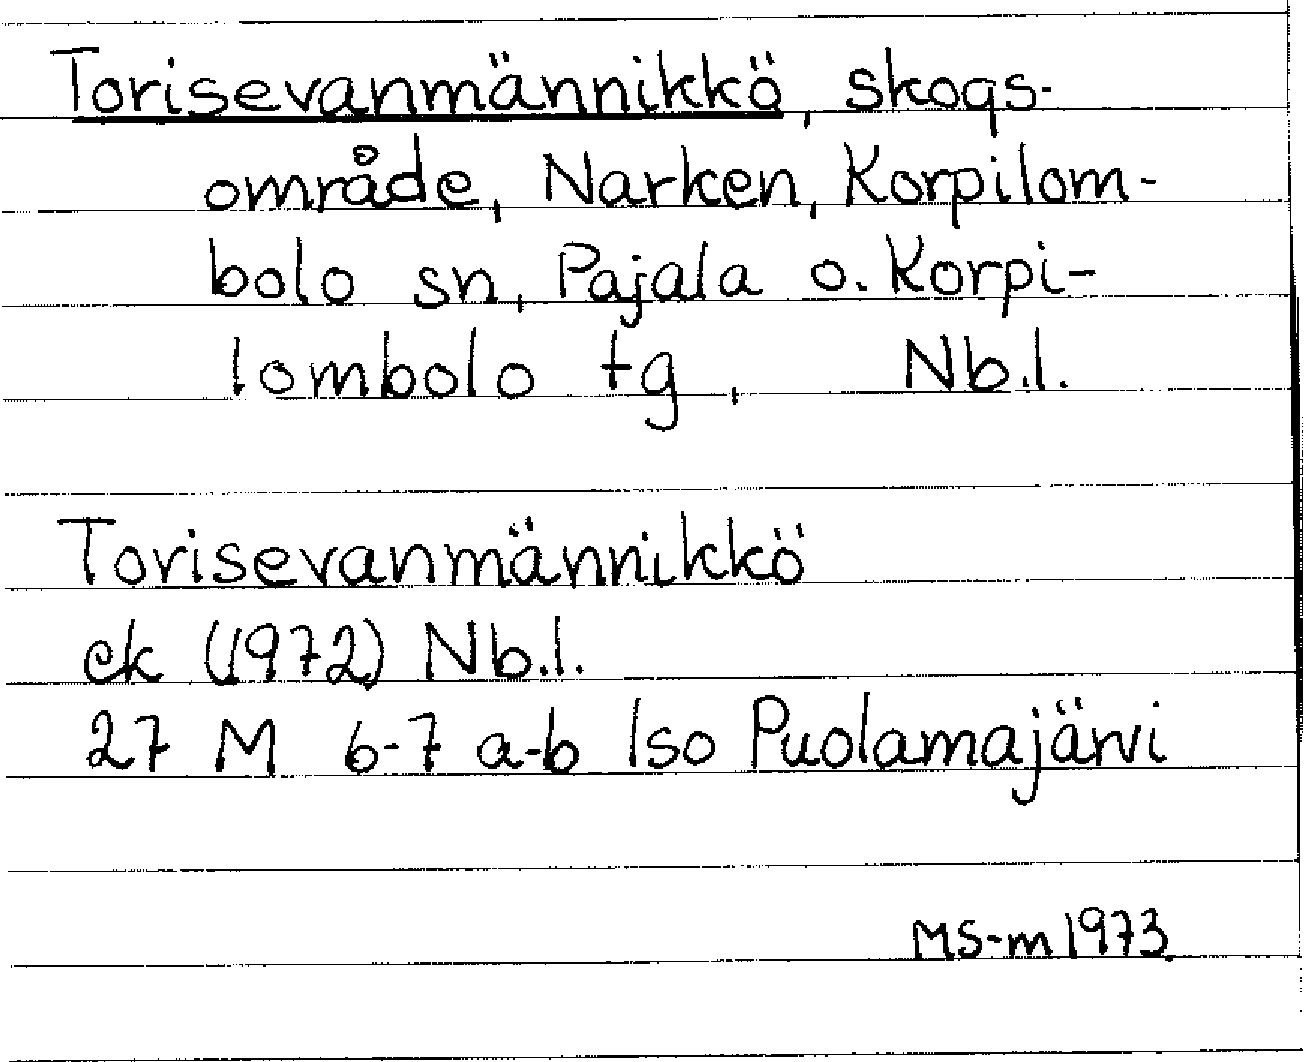 Torisevanmännikkö, skogs-
område, Narken, Korpilom-
bolo sn, Pajala o. Korpi-
lombolo tg, Nb.l.
Torisevanmännikkö
ek (1972) Nb.l.
27 M 6-7 a-b Iso Puolamajärvi
MS-m 1973.